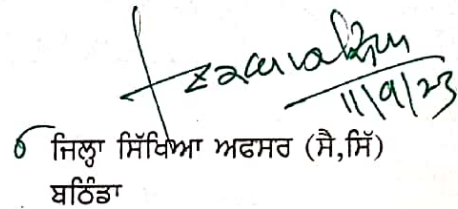 11/9/23
ਜਿਲ੍ਹਾ ਸਿੱਖਿਆ ਅਫਸਰ (ਸੈ,ਸਿੱ)
ਬਠਿੰਡਾ